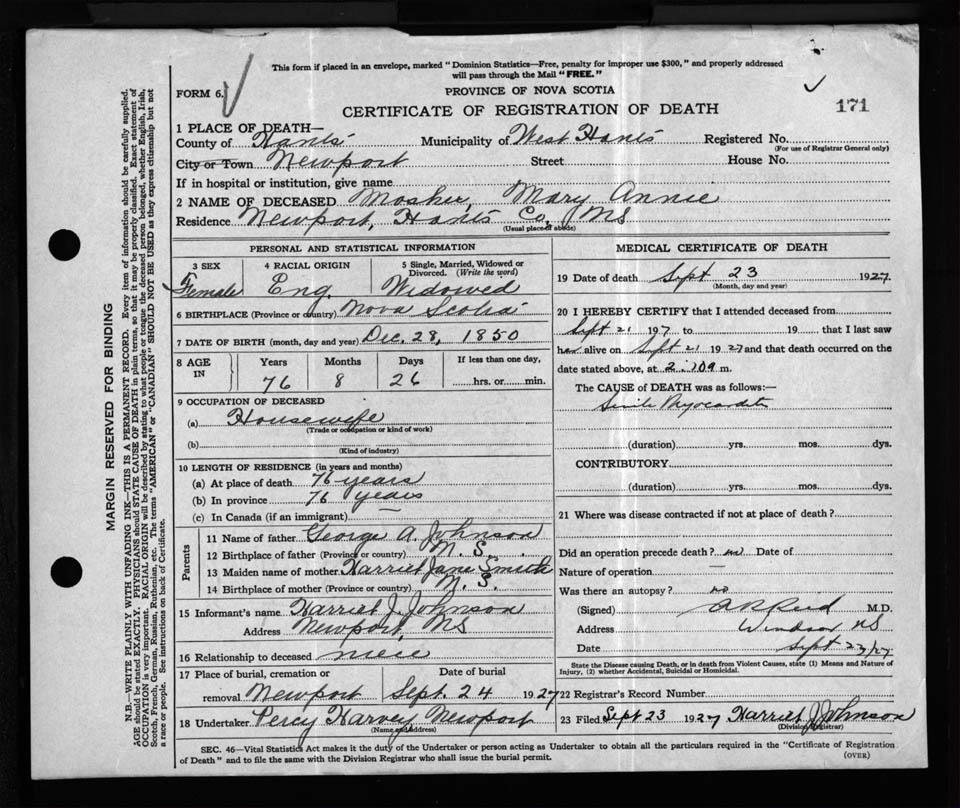 This form if placed in an envelope, marked "Dominion Statistics—Free, penalty for improper use $300," and properly addressed
will pass through the Mail "FREE."
FORM 6.
PROVINCE OF NOVA SCOTIA
CERTIFICATE OF REGISTRATION OF DEATH
171
1 PLACE OF DEATH—
County of Hants Municipality of West Hants Registered No.
(For use of Registrar General only)
City or Town Newport Street House No.
If in hospital or institution, give name
2 NAME OF DECEASED Mosher, Mary Annie
Residence Newport, Hants Co. NS
(Usual place of abode)
PERSONAL AND STATISTICAL INFORMATION
3 SEX 4 RACIAL ORIGIN 5 Single, Married, Widowed or Divorced. (Write the word)
Female Eng. Widowed
6 BIRTHPLACE (Province or country) Nova Scotia
7 DATE OF BIRTH (month, day and year) Dec. 28, 1850
8 AGE IN Years Months Days If less than one day,
76 8 26 hrs. or min.
9 OCCUPATION OF DECEASED
(a) Housewife
(Trade or occupation or kind of work)
(b)
(Kind of industry)
10 LENGTH OF RESIDENCE (in years and months)
(a) At place of death 76 years
(b) In province 76 years
(c) In Canada (if an immigrant)
Parents
11 Name of father George A. Johnson
12 Birthplace of father (Province or country) N. S.
13 Maiden name of mother Harriet Jane Smith
14 Birthplace of mother (Province or country) N. S.
15 Informant's name Harriet J. Johnson
Address Newport, NS
16 Relationship to deceased niece
17 Place of burial, cremation or Date of burial
removal Newport Sept. 24 1927
18 Undertaker Percy Harvey Newport
(Name and address)
MEDICAL CERTIFICATE OF DEATH
19 Date of death Sept 23 1927
(Month, day and year)
20 I HEREBY CERTIFY that I attended deceased from
Sept 21 1927 to 19 that I last saw
her alive on Sept 21 1927 and that death occurred on the
date stated above, at m.
The CAUSE of DEATH was as follows:—
Senile Myocarditis
(duration) yrs. mos. dys.
CONTRIBUTORY
(duration) yrs. mos. dys.
21 Where was disease contracted if not at place of death?
Did an operation precede death? no Date of
Nature of operation —
Was there an autopsy? no
(Signed) A R Reid M.D.
Address Windsor NS
Date Sept 23/27
State the Disease causing Death, or in death from Violent Causes, state (1) Means and Nature of
Injury, (2) whether Accidental, Suicidal or Homicidal.
22 Registrar's Record Number
23 Filed Sept 23 1927 Harriet J. Johnson
(Division Registrar)
SEC. 46—Vital Statistics Act makes it the duty of the Undertaker or person acting as Undertaker to obtain all the particulars required in the "Certificate of Registration
of Death" and to file the same with the Division Registrar who shall issue the burial permit.
(OVER)
MARGIN RESERVED FOR BINDING
N.B.—WRITE PLAINLY WITH UNFADING INK—THIS IS A PERMANENT RECORD. Every item of information should be carefully supplied.
AGE should be stated EXACTLY. PHYSICIANS should STATE CAUSE OF DEATH in plain terms, so that it may be properly classified. Exact statement of
OCCUPATION is very important. RACIAL ORIGIN will be described by stating to what people or tongue the deceased person belonged, whether English, Irish,
Scotch, French, German, Russian, Ruthenian, etc. The terms "AMERICAN" or "CANADIAN" SHOULD NOT BE USED as they express citizenship but not
a race or people. See instructions on back of Certificate.